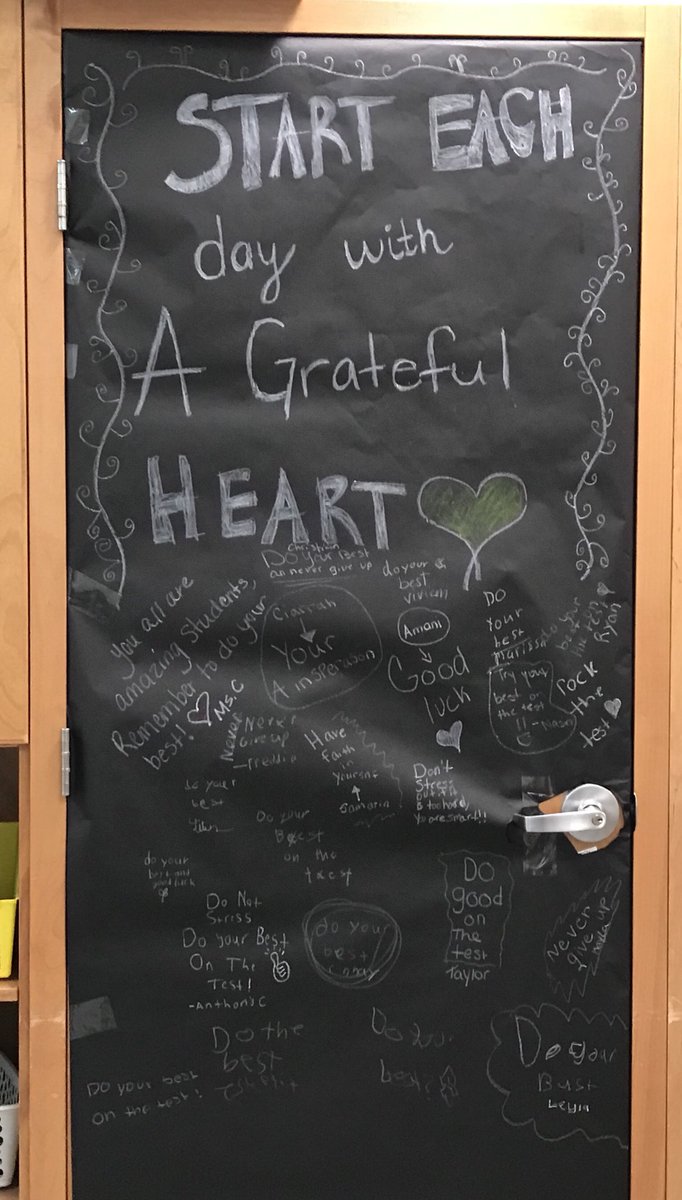 START EACH
day with
A Grateful
HEART
Christian
Do Your Best
an never give up
do your
best
vivian
You all are
amazing students,
Remember to do your
best!
Ms. C
Ciarrah
Your
A insperason
Amani
Good
luck
DO
Your
best
Marissa
do your
best
Ryan
Try your
best on
the test
!!
rock
the
test
Never
Never
Give up
-Freddie
Have
faith
in
yourself
Samaria
Don't
Stress
You are smart!!
do your
best
Do your
Best
on the
test
do your
best and
good luck
Do Not
Striss
Do your Best
On The
Test!
-Anthony C
do your
best
Do
good
on
The
test
Taylor
Never
give up
Do the
best
Do your best
on the test!
Do your
Do your
Bust
Leyla